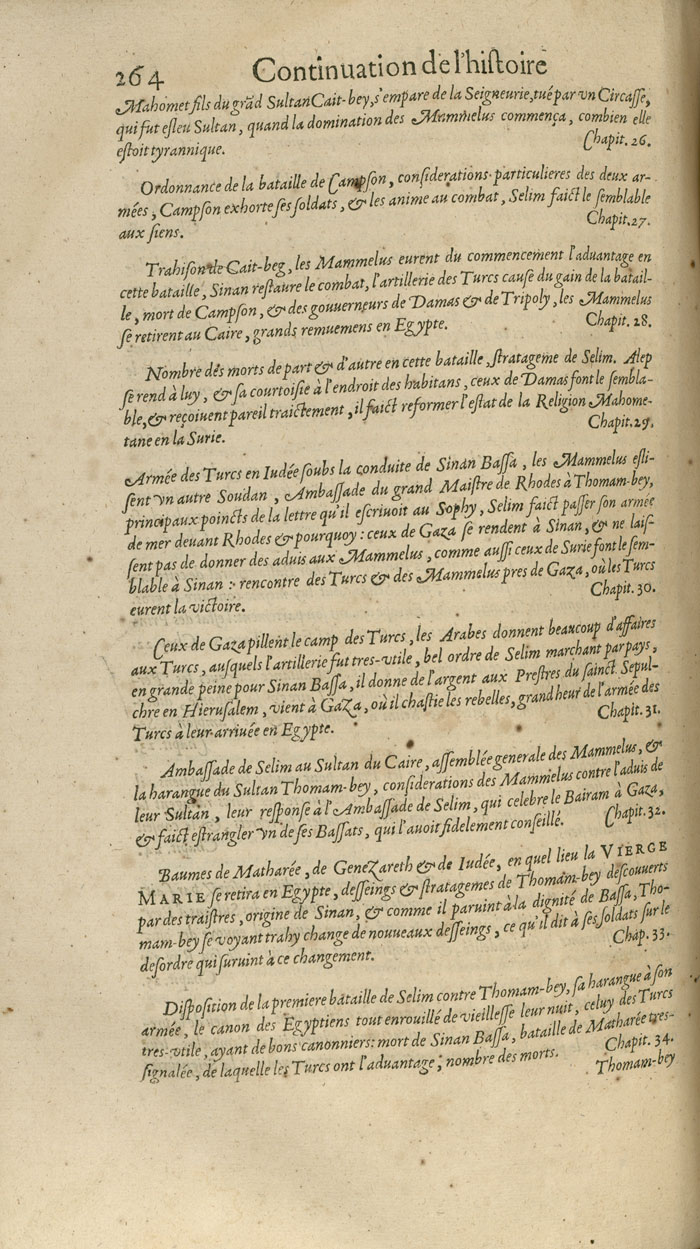 264 Continuation de l'histoire
Mahomet fils du grãd Sultan Cait-bey, s'empare de la Seigneurie, tué par vn Circasse,
qui fut esleu Sultan, quand la domination des Mammelus commença, combien elle
estoit tyrannique. Chapit. 26.
Ordonnance de la bataille de Campson, considerations particulieres des deux ar-
mées, Campson exhorte ses soldats, & les anime au combat, Selim faict le semblable
aux siens. Chapit. 27.
Trahison de Cait-beg, les Mammelus eurent du commencement l'aduantage en
cette bataille, Sinan restaure le combat, l'artillerie des Turcs cause du gain de la batail-
le, mort de Campson, & des gouuerneurs de Damas & de Tripoly, les Mammelus
se retirent au Caire, grands remuemens en Egypte. Chapit. 28.
Nombre des morts de part & d'autre en cette bataille, stratageme de Selim. Alep
se rend à luy, & sa courtoisie à l'endroit des habitans, ceux de Damas font le sembla-
ble, & reçoiuent pareil traictement, il faict reformer l'estat de la Religion Mahome-
tane en la Surie. Chapit. 29.
Armée des Turcs en Iudée soubs la conduite de Sinan Bassa, les Mammelus esli-
sent vn autre Soudan, Ambassade du grand Maistre de Rhodes à Thomam-bey,
principaux poincts de la lettre qu'il escriuoit au Sophy, Selim faict passer son armée
de mer deuant Rhodes & pourquoy: ceux de Gaza se rendent à Sinan, & ne lais-
sent pas de donner des aduis aux Mammelus, comme aussi ceux de Surie font le sem-
blable à Sinan: rencontre des Turcs & des Mammelus pres de Gaza, où les Turcs
eurent la victoire. Chapit. 30.
Ceux de Gaza pillent le camp des Turcs, les Arabes donnent beaucoup d'affaires
aux Turcs, ausquels l'artillerie fut tres-vtile, bel ordre de Selim marchant par pays,
en grande peine pour Sinan Bassa, il donne de l'argent aux Prestres du sainct Sepul-
chre en Hierusalem, vient à Gaza, où il chastie les rebelles, grand heur de l'armée des
Turcs à leur arriuée en Egypte. Chapit. 31.
Ambassade de Selim au Sultan du Caire, assemblée generale des Mammelus, &
la harangue du Sultan Thomam-bey, considerations des Mammelus contre l'aduis de
leur Sultan, leur response à l'Ambassade de Selim, qui celebre le Bairam à Gaza,
& faict estrangler vn de ses Bassats, qui l'auoit fidelement conseillé. Chapit. 32.
Baumes de Matharée, de Genezareth & de Iudée, en quel lieu la VIERGE
MARIE se retira en Egypte, desseings & stratagemes de Thomam-bey descouuerts
par des traistres, origine de Sinan, & comme il paruint à la dignité de Bassa, Tho-
mam-bey se voyant trahy change de nouueaux desseings, ce qu'il dit à ses soldats sur le
desordre qui suruint à ce changement. Chap. 33.
Disposition de la premiere bataille de Selim contre Thomam-bey, sa harangue à son
armée, le canon des Egyptiens tout enrouillé de vieillesse leur nuit, celuy des Turcs
tres-vtile, ayant de bons canonniers: mort de Sinan Bassa, bataille de Matharée tres-
signalée, de laquelle les Turcs ont l'aduantage, nombre des morts. Chapit. 34.
Thomam-bey